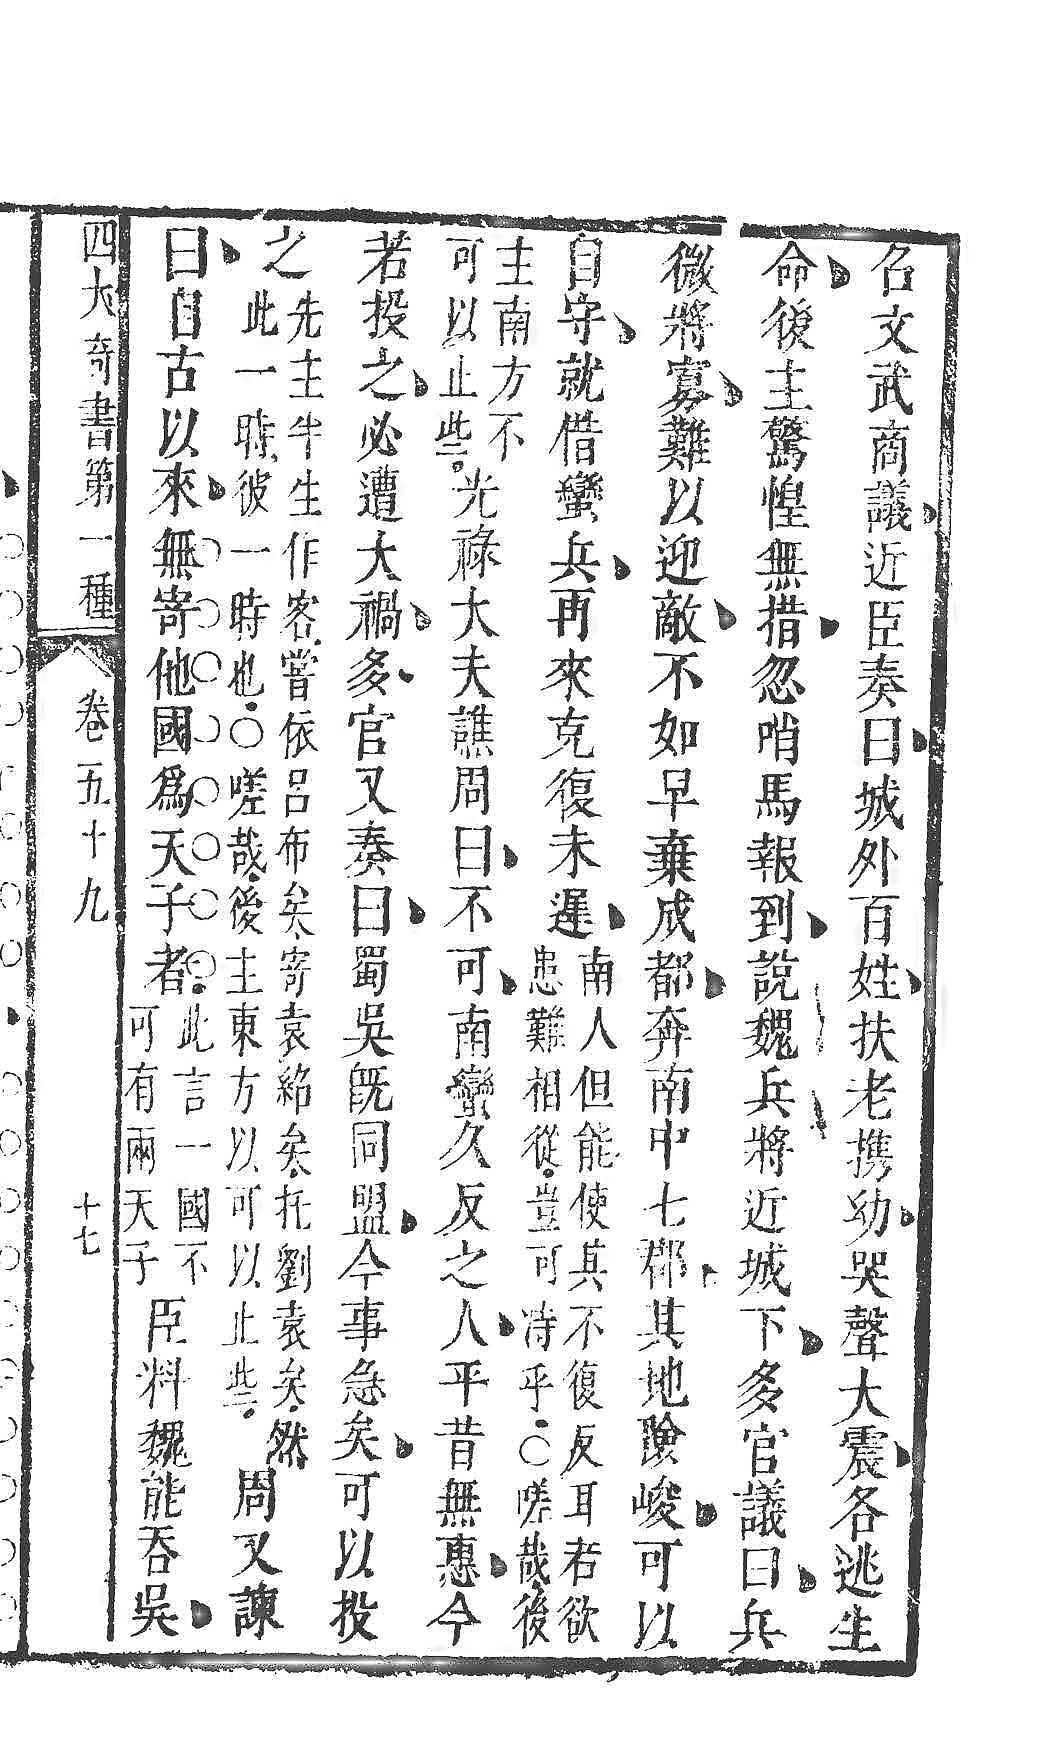 召文武商議近臣奏曰城外百姓扶老携幼哭聲大震各逃生
命後主驚惶無措忽哨馬報到說魏兵將近城下多官議曰兵
微將寡難以迎敵不如早棄成都奔南中七郡其地險峻可以
自守就借蠻兵再來克復未遲
南人但能使其不復反耳若欲
患難相從豈可恃乎○嗟哉後
主南方不
可以止些
光祿大夫譙周曰不可南蠻久反之人平昔無惠今
若投之必遭大禍多官又奏曰蜀吳既同盟今事急矣可以投
之
先主半生作客嘗依呂布矣寄袁紹矣托劉表矣然
此一時彼一時也○嗟哉後主東方以可以止些
周又諫
曰自古以來無寄他國爲天子者
此言一國不
可有兩天子
臣料魏能吞吳
四大奇書第一種
卷五十九
十七